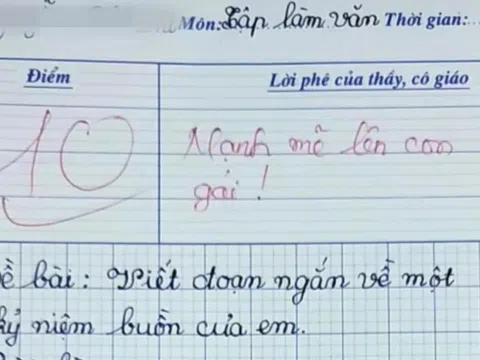 Môn: Tập làm văn Thời gian:
Điểm
Lời phê của thầy, cô giáo
10
Mạnh mẽ lên con
gái!
ề bài: Viết đoạn ngắn về một
kỷ niệm buồn của em.